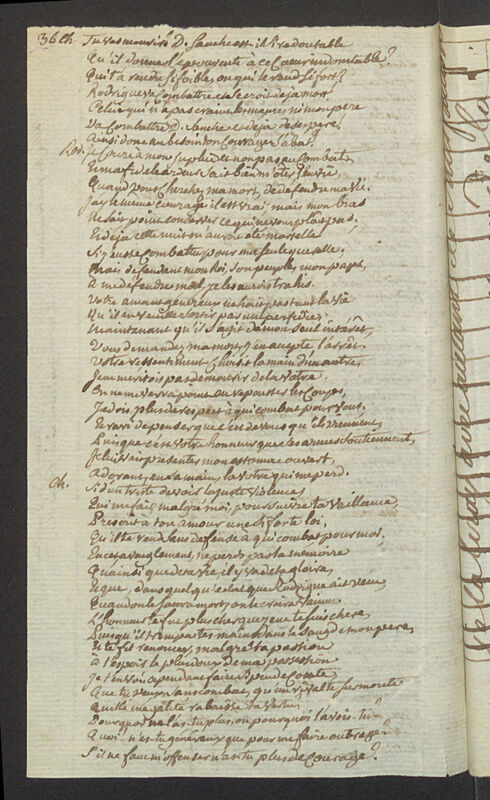 36 Ch. Tu vas mourir! D. Sanche est il si redoutable
Qu'il donne l'epouvante à ce Coeur indomtable?
Qui t'a rendu si foible, ou qui le rend si fort?
Rodrigue va combattre et se croit deja mort
Celui qui n'a pas craint les maures, ni mon pere
Va Combattre D. Sanche et deja desespere!
Ainsi donc au besoin ton Courage s'abat?
Rod. Je Cours à mon suplice et non pas au Combat,
Et ma fidele ardeur sait bien m'oter l'envie,
Quand vous Cherchez ma mort, de defendre ma vie.
J'ay le meme Courage il est vrai, mais mon bras
Ne sait point conserver ce qui ne vous plait pas,
Et deja cette nuit m'auroit été mortelle
Si j'eusse Combattu pour ma seule querelle.
Mais defendant mon Roi, son peuple, mon pays,
A me défendre mal, je les aurois trahis.
Votre amant genereux ne hait pas tant la vie
Qu'il en veuille sortir par une perfidie:
Maintenant qu'il s'agit de mon seul intéret,
Vous demandez ma mort, j'en accepte l'arret.
Votre ressentiment choisit la main d'un autre,
Je ne meritois pas de mourir de la votre.
On ne me verra point en repousser les Coups,
Je dois plus de respect à qui combat pour vous.
Et ravi de penser que c'est de vous qu'ils viennent,
Puisque c'est votre honneur que ses armes soutiennent,
Je lui vais presenter mon estomac ouvert,
Adorant en sa main, la votre qui me perd.
Ch. Si d'un triste devoir la juste violence,
Qui me fait, malgré moi, poursuivre ta vaillance,
Prescrit à ton amour une si forte loi,
Qu'il te rend sans defense à qui combat pour moi.
En cet aveuglement, ne perds pas la memoire
Qu'ainsi que de ta vie, il y va de ta gloire,
Et que, dans quelqu'eclat que Rodrigue ait vécu,
Quand on le saura mort, on le croira vaincu.
L'honneur te fut plus cher que je ne te suis chere,
Puisqu'il trempa tes mains dans le sang de mon pere,
Et te fit renoncer, malgré ta passion
à l'espoir le plus doux de ma possession
Je t'en vois cependant faire si peu de Conte
Que tu veux, sans combat, qu'un rival te surmonte
Quelle inegalité rabaisse ta vertu,
Pourquoi ne l'as-tu plus, ou pourquoi l'avois-tu?
Quoi! n'es-tu généreux que pour me faire outrage?
S'il ne faut m'offenser n'as-tu plus de Courage?